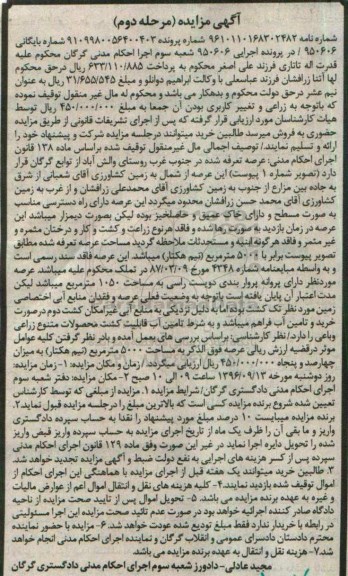 آگهی مزایده (مرحله دوم)
شماره نامه ۹۶۱۰۱۱۰۱۶۸۳۰۲۴۸۲ شماره پرونده ۹۱۰۹۹۸۰۰۵۶۴۰۰۴۰۳ شماره بایگانی
۹۵۰۶۰۶ / در پرونده اجرایی ۹۵۰۶۰۶ شعبه سوم اجرا احکام مدنی گرگان محکوم علیه
قدرت اله تاتاری فرزند علی اصغر محکوم به پرداخت ۶۳۳/۱۱۰/۸۸۵ ریال درحق محکوم
لها آتنا زرافشان فرزند عباسعلی با وکالت ابراهیم دوانلو و مبلغ ۳۱/۶۵۵/۵۴۵ ریال به عنوان
نیم عشر درحق دولت محکوم و بدهکار می باشد و محکوم له مال غیر منقول توقیف نموده
که باتوجه به زراعی و تغییر کاربری بودن آن جمعا به مبلغ ۴۵۰/۰۰۰/۰۰۰ ریال توسط
هیات کارشناسان مورد ارزیابی قرار گرفته که پس از اجرای تشریفات قانونی از طریق مزایده
حضوری به فروش میرسد طالبین خرید میتوانند درجلسه مزایده شرکت و پیشنهاد خود را
ارائه و تسلیم نمایند./ توصیف اجمالی مال غیرمنقول توقیف شده براساس ماده ۱۳۸ قانون
اجرای احکام مدنی: عرصه تعرفه شده در جنوب غرب روستای والش آباد از توابع گرگان قرار
دارد (تصویر شماره ۱ پیوست) این عرصه از شمال به زمین کشاورزی آقای شعبانی از شرق
به جاده بین مزارع از جنوب به زمین کشاورزی آقای محمدعلی زرافشان و از غرب به زمین
کشاورزی آقای محمد حسن زرافشان محدود میگردد این عرصه دارای راه دسترسی مناسب
به صورت مسطح و دارای خاک عمیق و حاصلخیز بوده لیکن بصورت دیمزار میباشد این
عرصه در زمان بازدید به صورت رها شده و فاقد هرنوع زراعت و کشت و کار و درختان مثمره و
غیر مثمر و فاقد هرگونه ابنیه و مستحدثات ملاحظه گردید مساحت عرصه تعرفه شده مطابق
تصویر پیوست برابر با ۵۰۰۰ مترمربع (نیم هکتار) میباشد. این عرصه فاقد سند رسمی است
و به واسطه مبایعنامه شماره ۴۳۴۸ مورخ ۸۷/۰۳/۰۹ در تملک محکوم علیه میباشد. عرصه
موردنظر دارای پروانه پروار بندی دویست راسی به مساحت ۱۰۵۰ مترمربع میباشد لیکن
مدت اعتبار آن پایان یافته است باتوجه به وضعیت فعلی عرصه و فقدان منابع آبی اختصاصی
زمین مورد نظر تک کشت بوده اما به دلیل نزدیکی به منابع آبی غیر امکان کشت دوم درصورت
خرید و تامین آب فراهم میباشد و به شرط تامین آب قابلیت کشت محصولات متنوع زراعی
وباغی را دارد./ نظر کارشناسی: براساس بررسی های بعمل آمده و بادر نظر گرفتن کلیه عوامل
موثر درقضیه ارزش ریالی عرصه فوق الذکر به مساحت ۵۰۰۰ مترمربع (نیم هکتار) به میزان
چهارصد و پنجاه ۴۵۰/۰۰۰/۰۰۰ ریال ارزیابی میگردد. /زمان و مکان مزایده: ۱- زمان مزایده:
روز دوشنبه مورخه ۱۳۹۶/۰۹/۱۳ ساعت ۰۹ الی ۱۰ صبح ۲- مکان مزایده: دفتر شعبه سوم
اجرای احکام مدنی دادگستری گرگان/ شرایط مزایده ۱. مزایده از مبلغی که توسط کارشناس
تعیین شده شروع برنده مزایده کسی است که بالاترین مبلغ را درجلسه مزایده قبول نماید ۲.
برنده مزایده میبایست ۱۰ درصد مبلغ مورد پیشنهاد را نقدا به حساب سپرده دادگستری
واریز و ما بقی آن را ظرف یک ماه از تاریخ اجرای مزایده به حساب سپرده واریز قبض واریز
شده را تحویل دایره اجرا نماید در غیر این صورت وفق ماده ۱۲۹ قانون اجرای احکام مدنی
سپرده پس از کسر هزینه های اجرایی به نفع دولت ضبط و آگهی مزایده تجدید خواهد شد.
۳. طالبین خرید میتوانند یک هفته قبل از اجرای مزایده با هماهنگی این اجرای احکام از
اموال توقیف شده بازدید نمایند. ۴- کلیه هزینه های نقل و انتقال اموال اعم از عوارض مالیات
و غیره به عهده برنده مزایده می باشد. ۵- تحویل اموال پس از تایید صحت مزایده از ناحیه
دادگاه صادر کننده اجرائیه خواهد بود در صورت عدم تائید صحت مزایده این اجرا مسئولیتی
در رابطه با خریدار ندارد فقط مبلغ تودیع شده عودت خواهد شد. ۶- مزایده با حضور نماینده
محترم دادستان دادسرای عمومی و انقلاب گرگان و نماینده اجرای احکام مدنی انجام خواهد
شد ۷- هزینه نقل و انتقال به عهده برنده مزایده می باشد.
مجید عادلی- دادورز شعبه سوم اجرای احکام مدنی دادگستری گرگان